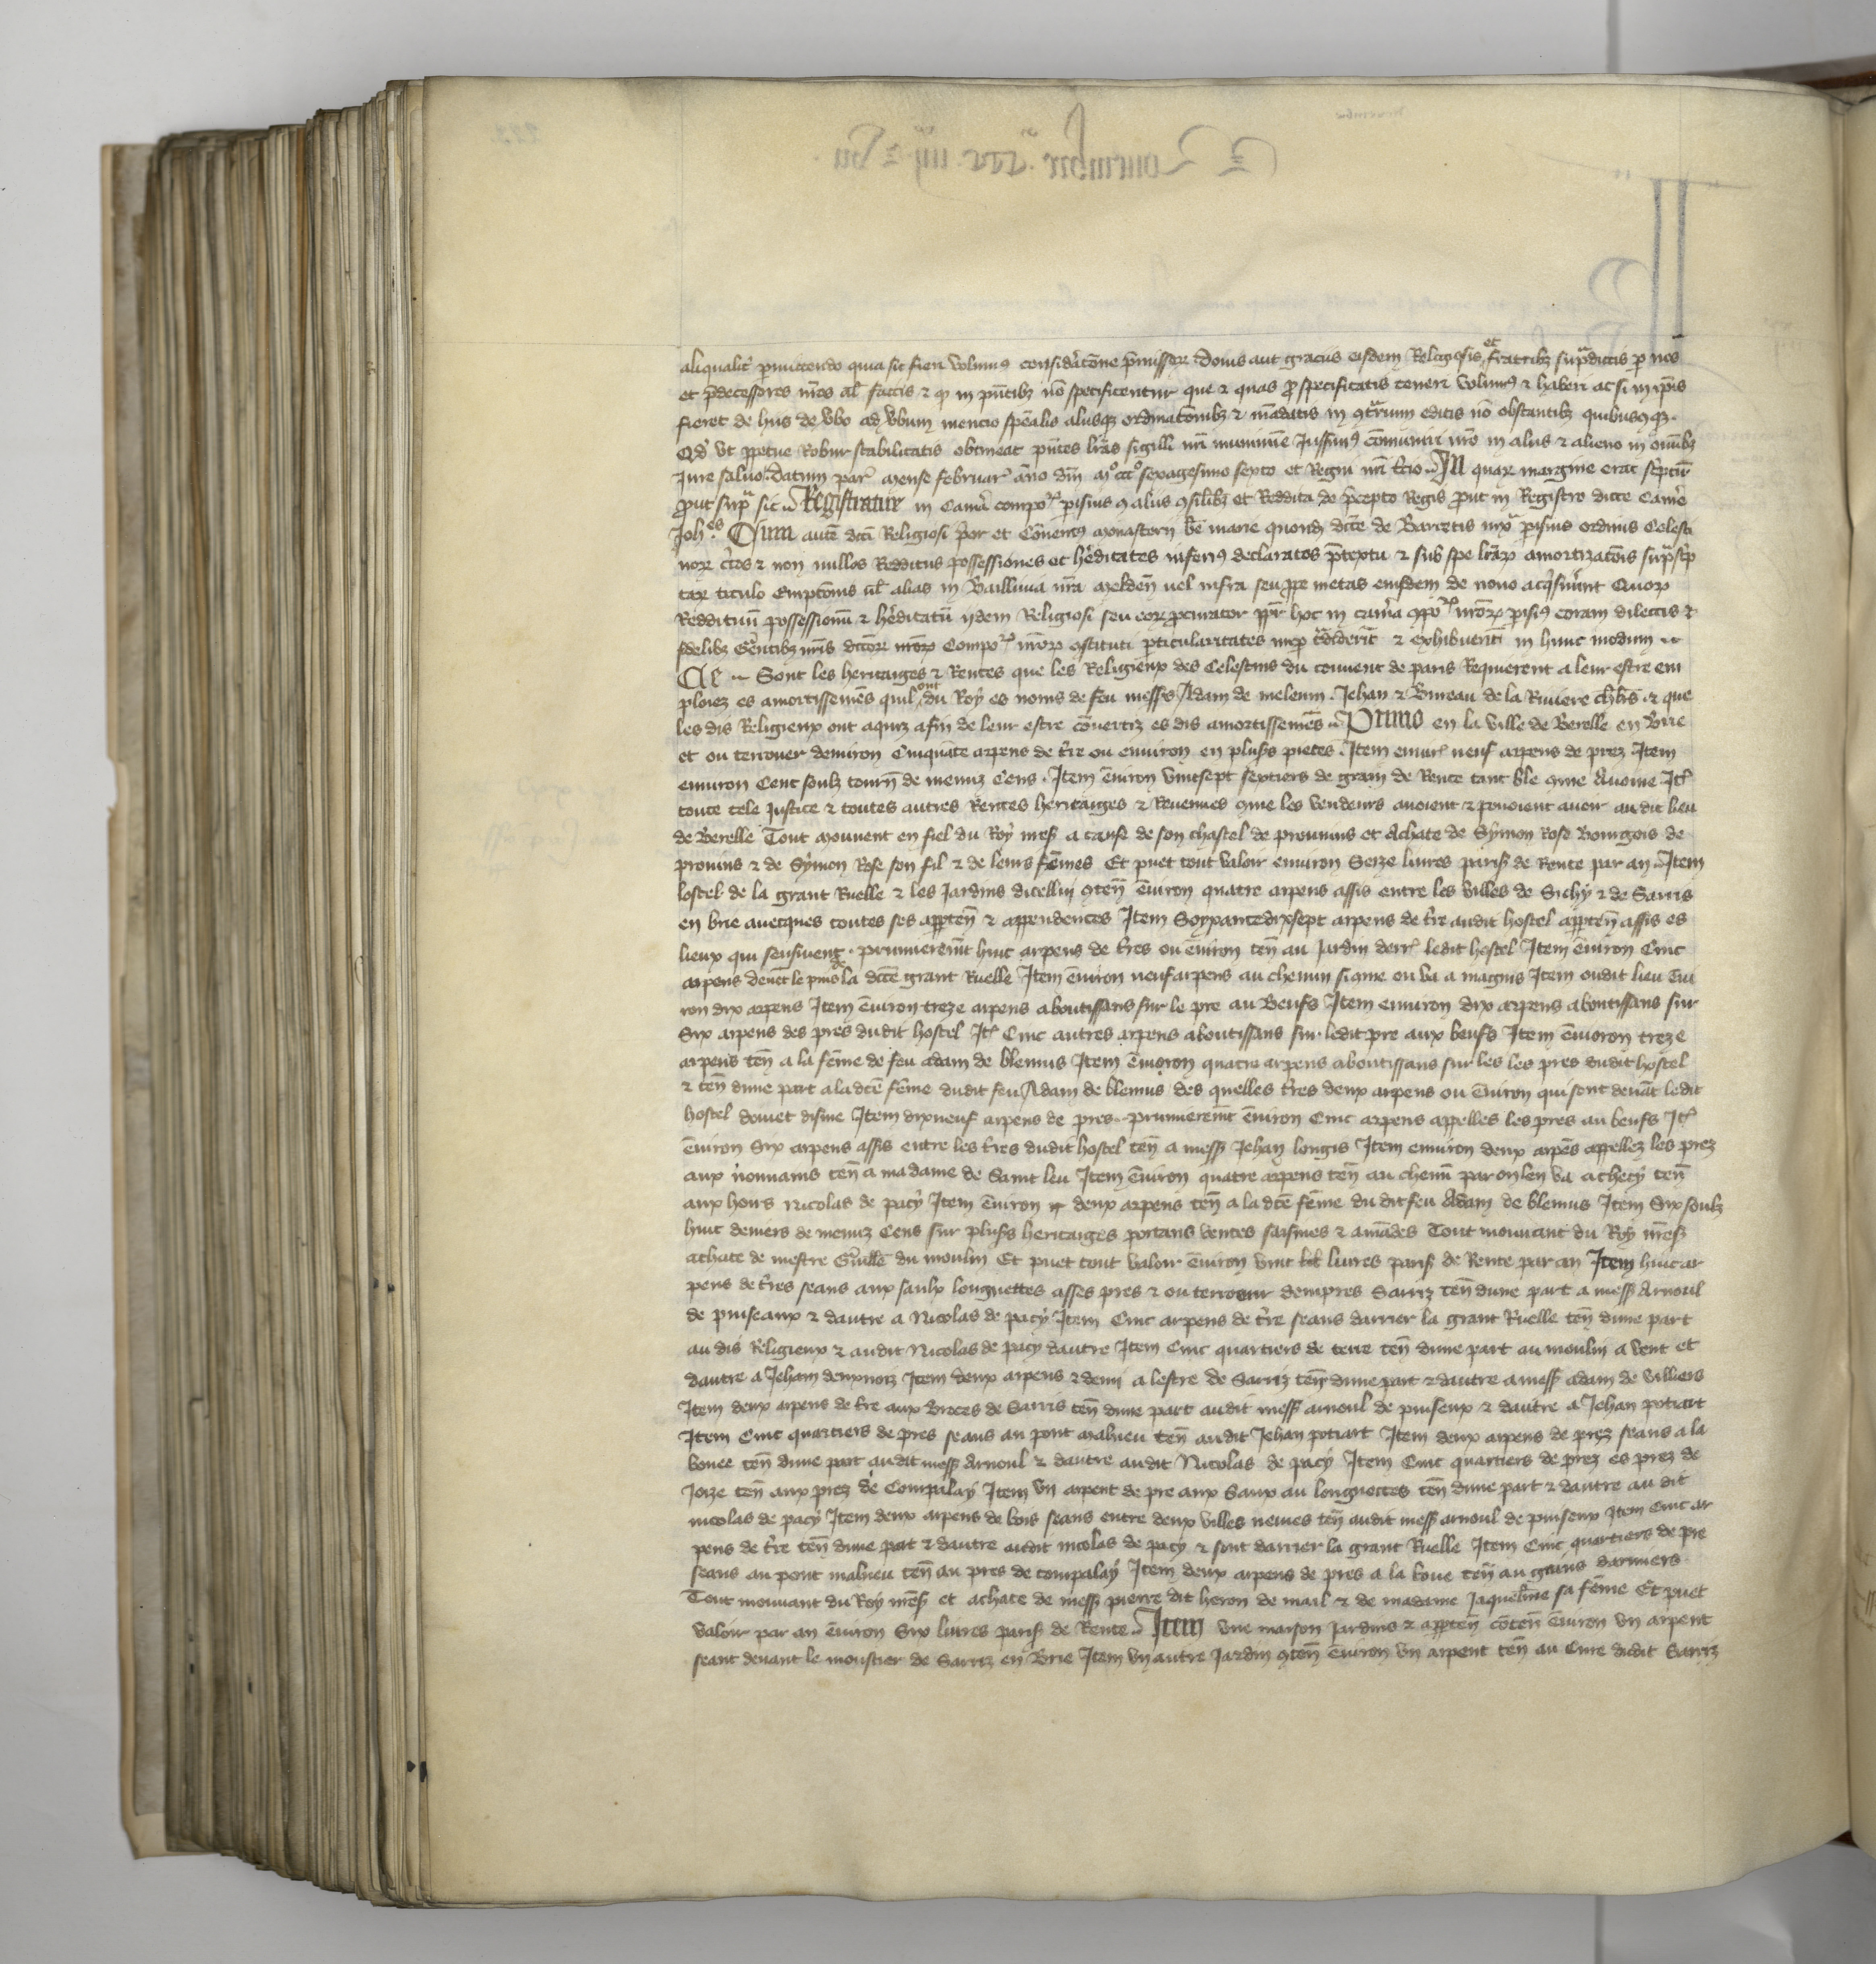 aliqualit' p̄mittendo quia sic fieri volum9 considãcōne p̄missor donis aut graciis eisdem Religiosis et fratribz sup̃dictis p nos
et p̄decessores nr̄os al' factis & q in pn̄tibz nō specificentur que & quas p specificatis teneri volum9 & haberi ac si in ip̄is
fieret de hiis de v̄bo ad v̄bum mencio sp̄ealis aliisqz ordinacōnibz & mādatis in 9trarium editis nō obstantibz quibuscūqz.
Qd' vt ppetue Robur stabilitatis obtineat pn̄tes lrãs sigilli nr̄i munimīe Jussim9 cōmuniri nr̄o in aliis & alieno in om̄ibz
Jure saluo. Datum par' mense februar' ãno dn̄i mº cccº sexagesimo sexto et Regni nr̄i t̄cio. In quar margine erat sc̄ptū
put sup̃ sic Registratur in Cam̃a compo& pisius 9 aliis 9silibz et Reddita de p̄cepto Regis put in Registro dicte Cam̃e
Joh̃es Cum autē dc̄i Religiosi p̄or et Cōuent9 monasterii bē marie quond dc̄te de Barretis iuxª pisius ordinis Celesti
nor c̄tos & non nullos Redditus possessiones et hēditates inferi9 declaratos p̄textu & sub spe lr̄ar amortizacōis sup̃sc̄p
tar titulo Empcōnis uł alias in Bailliuia nr̄a melden̄ uel infra seu ppe metas eiusdem de nouo acq̄siuerint Quor
Reddituū possessionū & hēditatū ijdem Religiosi seu eor pcurator ppr̄ hoc in cam̃a 9po& nr̄or pisi9 coram dilectis &
fidelibz Gentibz nr̄is dcōr nr̄or Compo& 9stituti pticularitates nup t̃diderīt & exhibuerīt in hunc modum
Ce Sont les heritaiges & Rentes que les Religieux des Celestins du couuent de paris Requierent a leur estre em
ploiez es amortissemēs quil ont du Roy es noms de feu messrs Adam de meleun. Jehan & Bureau de la Riuiere chlr̄s. & que
les dis Religieux ont aquiz afin de leur estre cōuertiz es dis amortissemēs Primo en la ville de Berelle en Brie
et ou terrouer denuiron Cinquāte arpens de t̄re ou enuiron en plus̄s pieces. Item enuir' neuf arpens de prez Item
enuiron Cent soulz tourn̄ de menuz Cens. Item ēuiron vintsept sextiers de grain de Rente tant ble 9me Auoine It'
toute tele Justice & toutes autres Rentes heritaiges & Reuenues 9me les vendeurs auoient & pouoient auoir audit lieu
de Berelle Tout mouuent en fiel du Roy nr̄es a cause de son chastel de prouuins et Achate de Symon Rose Bourgois de
prouins & de Symon Rose son fil & de leurs fēmes Et puet tout valoir enuiron Seize liures paris de Rente par an Item
lostel de la grant Ruelle & les Jardins dicellui 9ten̄ ēuiron quatre arpens assis entre les villes de Sichy & de Sarris
en brie auecques toutes ses appten̄ & appendences Item Soyxantedixsept arpens de t̄re audit hostel appten̄ assis es
lieux qui sensiuent. prumierem̄t huit arpens de t̄res ou ēuiron ten̄ au Jardin derr' ledit hostel Item ēuiron Cinc
arpens deuēt le puis de la dc̄e grant Ruelle Item ēuiron neuf arpens au chemin si9me ou va a magnis Item oudit lieu Eu
iron dix arpens Item ēuiron treze arpens aboutissans sur le pre au Beufs Item enuiron dix arpens aboutissans sur
Six arpens des pres dudit hostel It' Cinc autres arpens aboutissans sur ledit pre aux beufs Item ēuoron treze
arpens ten̄ a la fēme de feu adam de blemus Item ēuoron quatre arpens aboutissans sur les les pres dudit hostel
& ten̄ dune part a la dc̄e fēme dudit feu Adam de blemus des quelles t̄res deux arpens ou ēuiron qui sont deuāt ledit
hostel doiuet disme Item dixneuf arpens de pres. prumierem̄t ēuiron Cinc arpens appelles les pres au beufs It'
ēuiron Six arpens assis entre les t̄res dudit hostel ten̄ a mess Jehan longis Item enuiron deux arpēs appellez les prez
aux nonnains ten̄ a madame de Saint leu Item ēuiron quatre arpens ten̄ au chemī par on len va a checy ten̄
aux hoirs Nicolas de pacy Item ēuiron deux arpens ten̄ a la dc̄e fēme du dit feu Adam de blemus Item Six soulz
huit deniers de menuz Cens sur plus̄s heritaiges portans ventes saisines & amādes Tout mouuant du Roy nr̄es
achate de mestre Guill̄e du moulin Et puet tout valoir ēuiron vint liures paris de Rente par an Item huit ar
pens de t̄res seans aux saulx longuettes asses pres & ou terroour dempres Sarriz ten̄ dune part a mess Arnoul
de puiseaux & dautre a Nicolas de pacy Item Cinc arpens de t̄re seans darrier la grant Ruelle ten̄ dune part
au dis Religieux & audit Nicolas de pacy dautre Item Cinc quartiers de terre ten̄ dune part au moulin a vent et
dautre a Jeham deuxnoiz Item deux arpens & demi a lestre de Sarriz ten̄ dune part & dautre a mess adam de villiers
Item deux arpens de t̄re aux broces de Sarris ten̄ dune part audit mess arnoul de puiseux & dautre a Jehan potiart
Item Cinc quartiers de pres seans au pont malueu ten̄ audit Jehan potiart Item deux arpens de prez seans a la
bouee ten̄ dune part audit mess Arnoul & dautre audit Nicolas de pacy Item Cinc quartiers de prez es prez de
Joize ten̄ aux prez de Compalay Item vn arpent de pre aux Saux au longuettes ten̄ dune part & dautre au dit
nicolas de pacy Item deux arpens de bois seans entre deux villes neuues ten̄ audit mess arnoul de puiseux Item Cinc ar
pens de t̄re ten̄ dune part & dautre audit nicolas de pacy & sont darrier la grant Ruelle Item Cinc quartiers de pre
seans au pont malueu ten̄ au pres de compalay Item deux arpens de pres a la boue ten̄ au darmiers.
Tout mouuant du Roy nr̄es et achate de mess pierre dit heron de mail & de madame Jaqueline sa fēme Et puet
valoir par an ēuiron Six liures paris de Rente Item vne maison Jardins & appten̄ cōten̄ ēuiron vn arpent
seant deuant le moustier de Sarriz en Brie Item vn autre Jardin 9ten̄ ēuiron vn arpent ten̄ au Cure dudit Sarriz